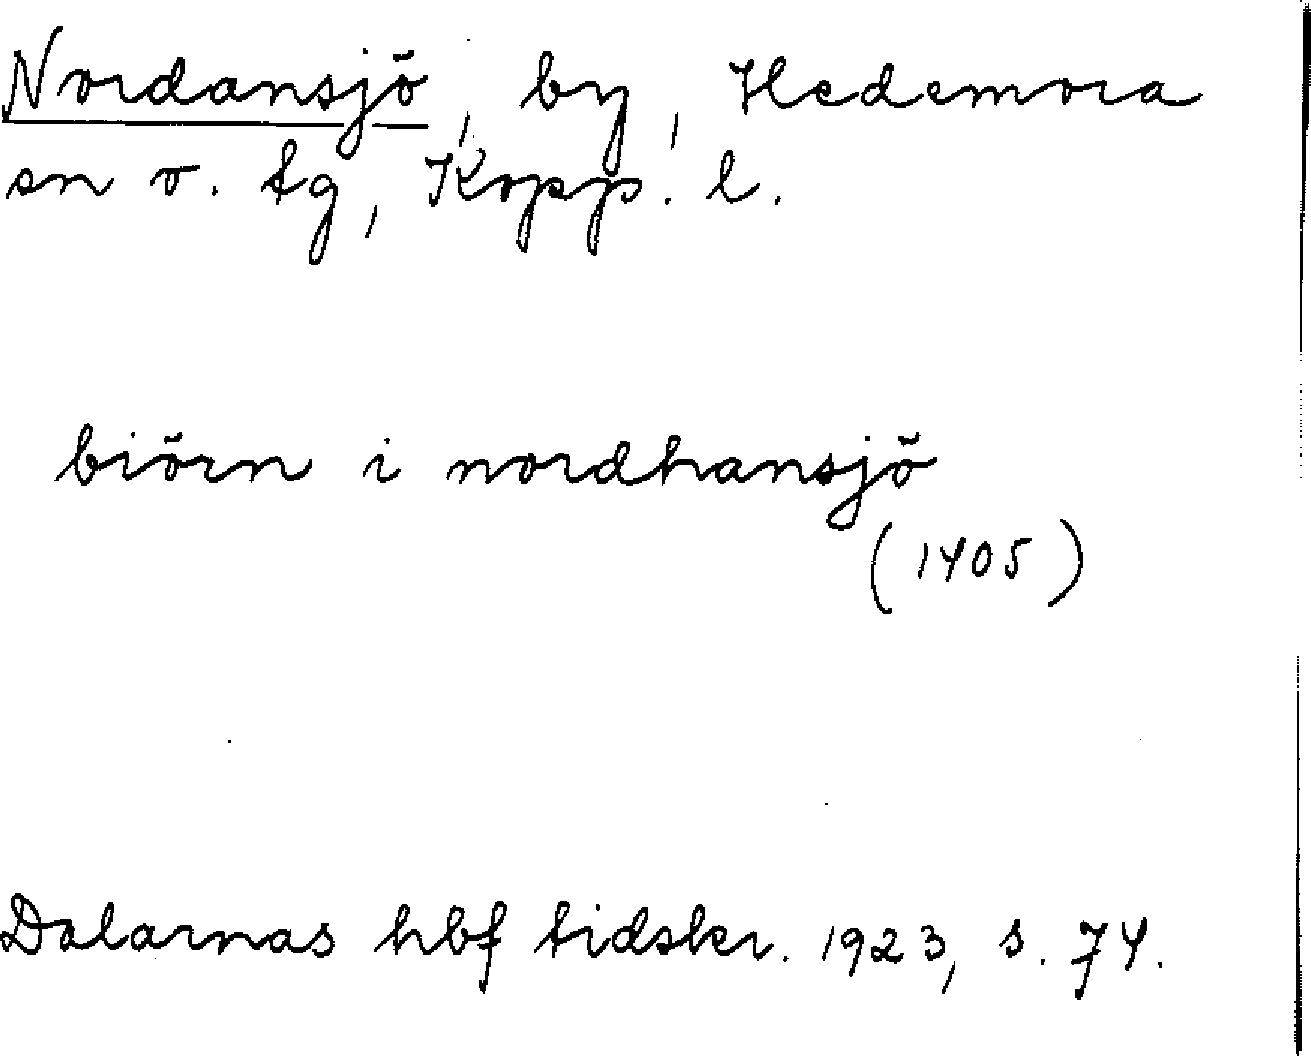 Nordansjö, by, Hedemora
sn o. tg, Kopp. l.
biörn i nordhansjö
(1405)
Dalarnas hbf tidskr. 1923, s. 74.